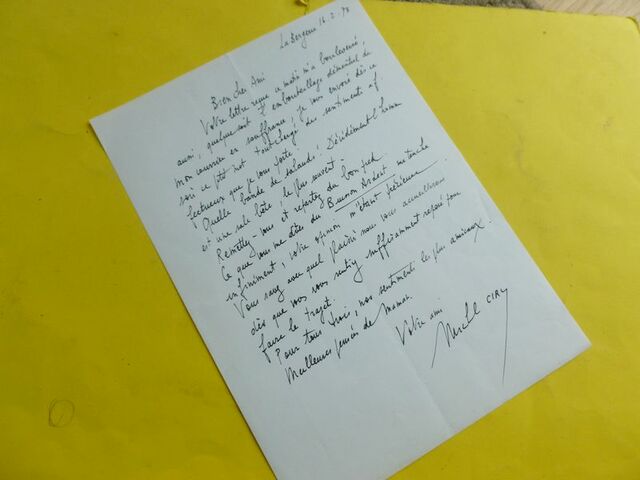 La Bergerie 16.2.78
Bien cher Ami
Votre lettre reçue ce matin m'a bouleversé,
aussi, quelque soit l'embouteillage démentiel de
mon courrier en souffrance, je vous envoie dès ce
soir ce petit mot tout chargé des sentiments af-
fectueux que je vous porte.
Quelle bande de salauds! Décidément l'homme
est une sale bête, le plus souvent.
Remettez vous et repartez du bon pied.
Ce que vous me dites du Buisson Ardent me touche
infiniment, votre opinion m'étant précieuse.
Vous savez avec quel plaisir nous vous accueillerons
dès que vous vous sentirez suffisamment reposé pour
faire le trajet.
Pour tous trois, nos sentiments les plus amicaux!
Meilleures pensées de Maman.
Votre ami
Michel CIRY